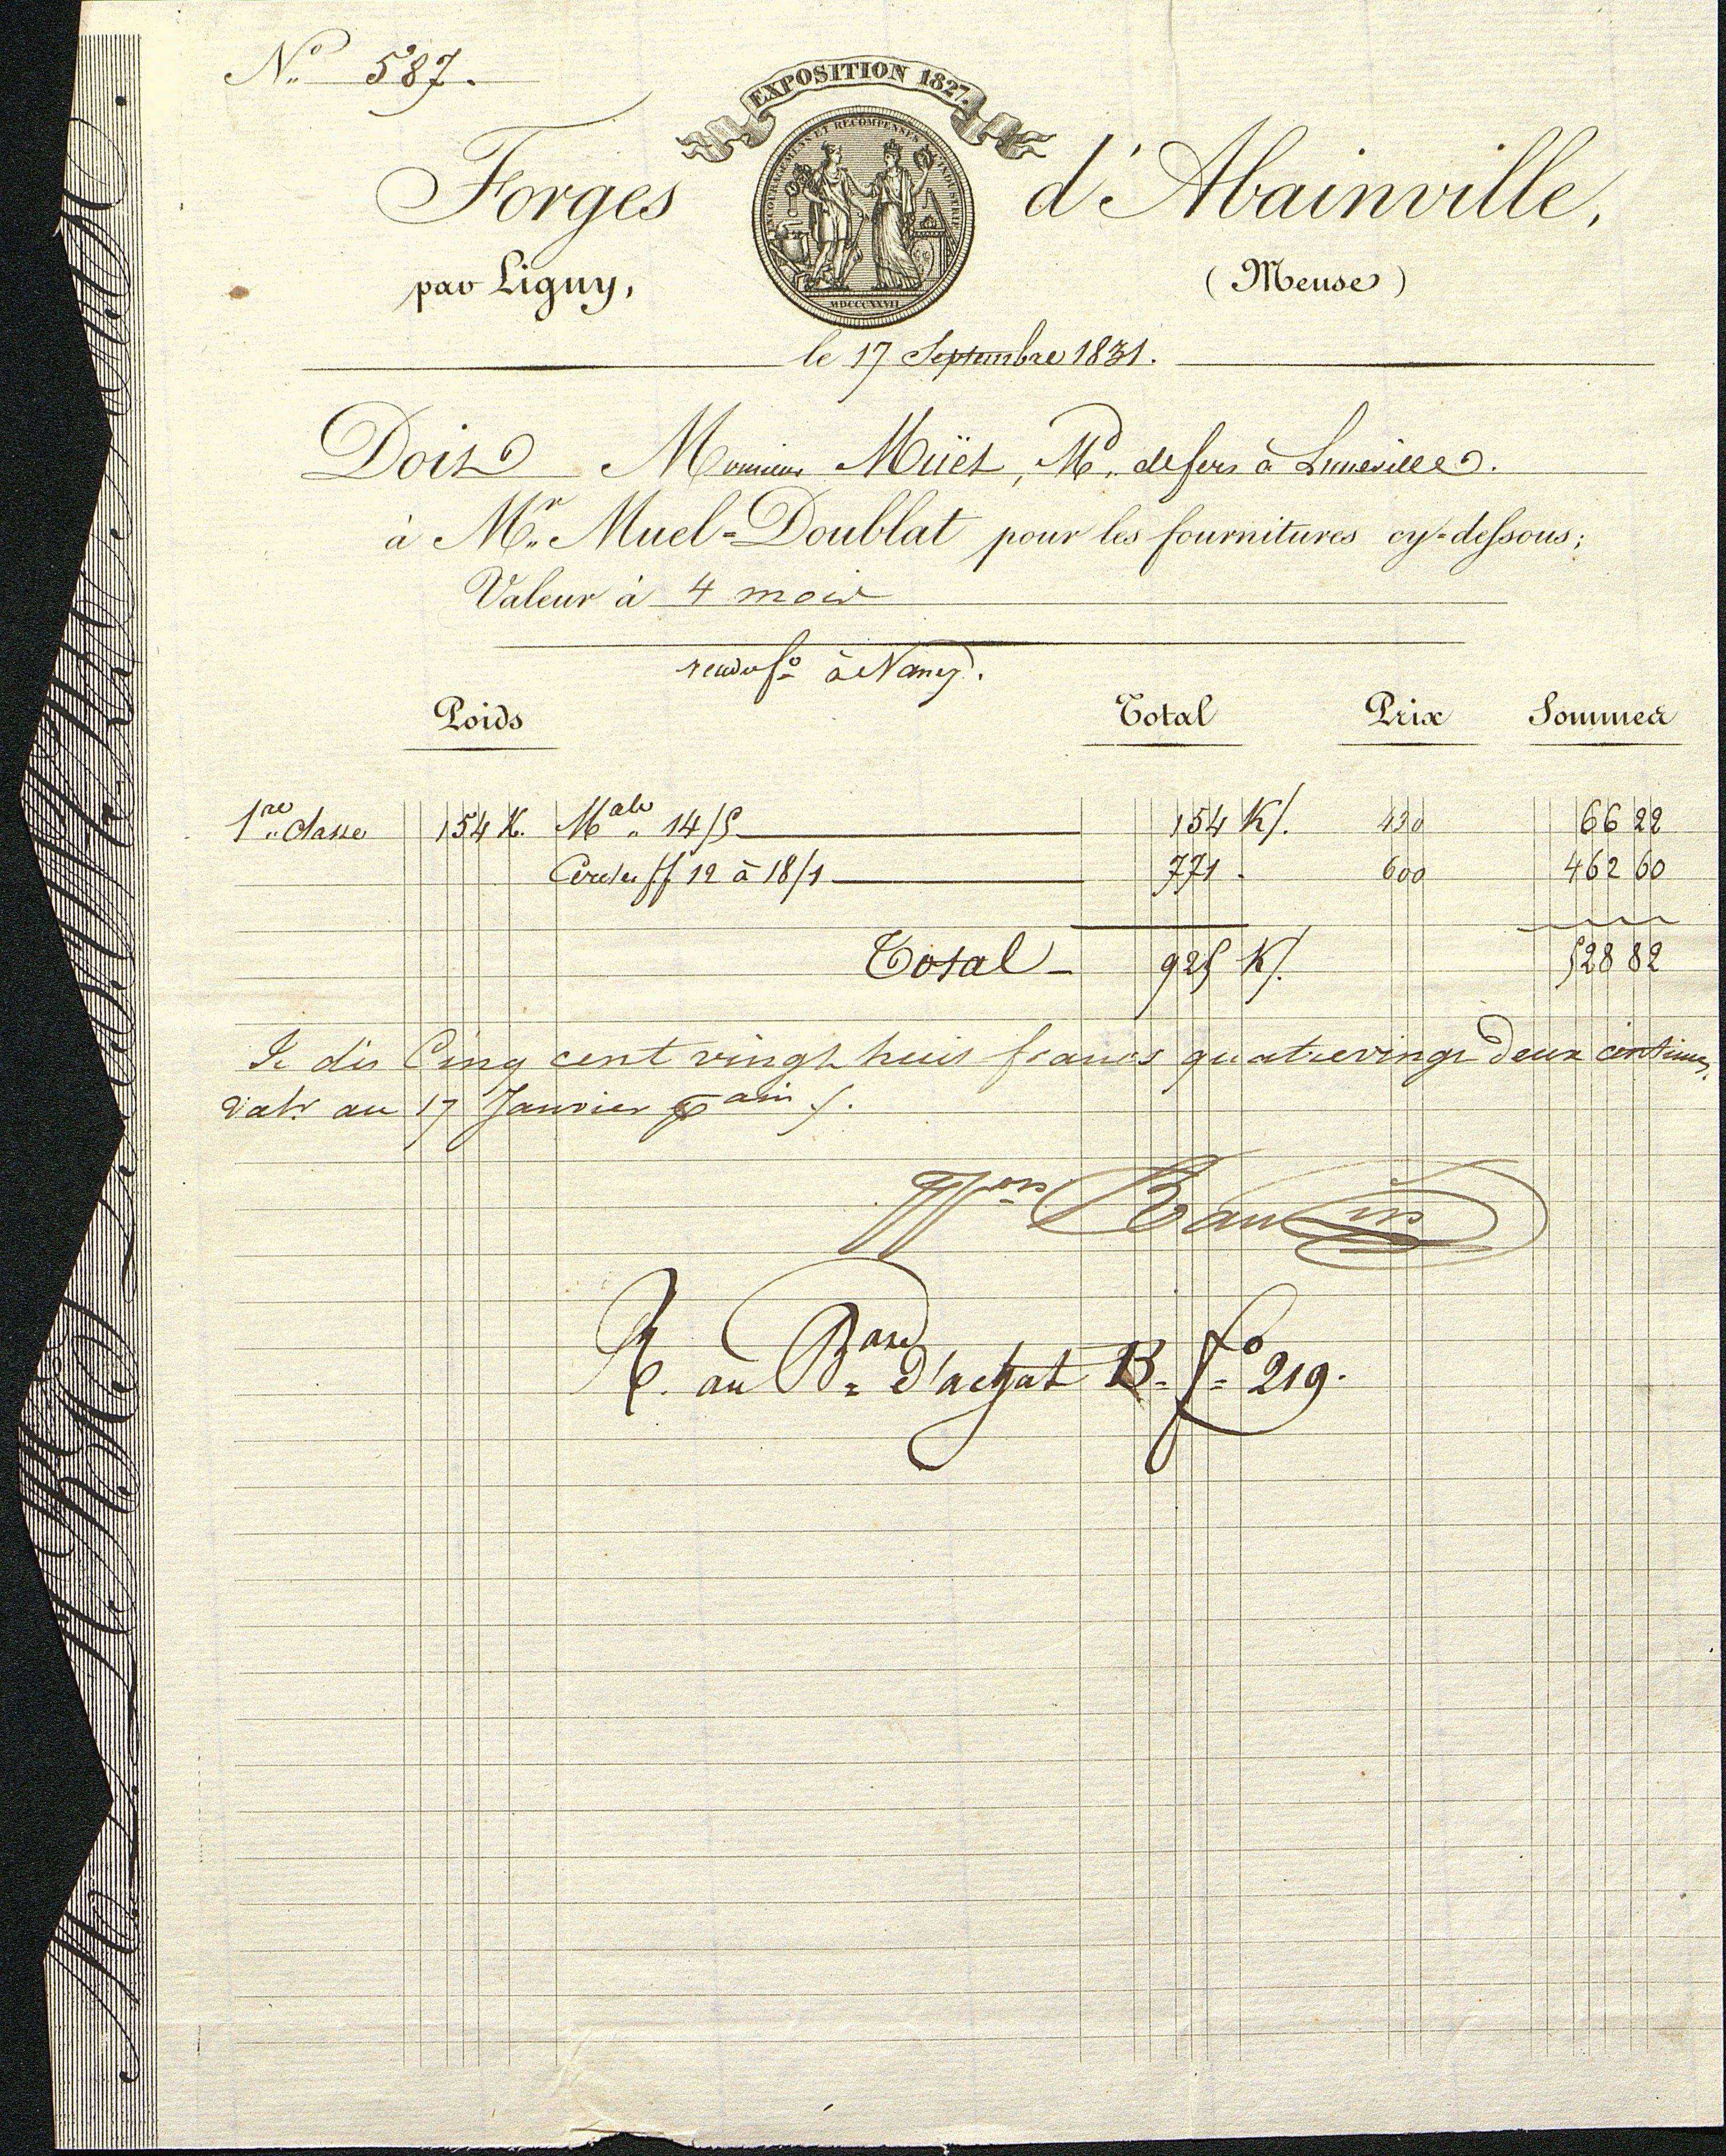 N.º 587.
EXPOSITION 1827.
ENCOURAGEMENS ET RECOMPENSES A L'INDUSTRIE
MDCCCXXVII
Forges d'Abainville,
par Ligny, (Meuse)
le 17 Septembre 1831.
Doit Monsieur Müel, Md. de fers à Luneville.
à Mr. Muel-Doublat pour les fournitures cy-dessous;
Valeur à 4 mois
rendu fo à Nancy.
Poids Total Prix Sommes
1re classe 154 K. 14/5 154 K/. 430 66 22
Cercles ff 12 à 18/1 771 - 600 462 60
Total - 925 K/. 528 82
Je dis Cinq cent vingt huit francs quatrevingt deux centimes,
val.r au 17 Janvier pain /.
R. au d'achat B. fo 219.